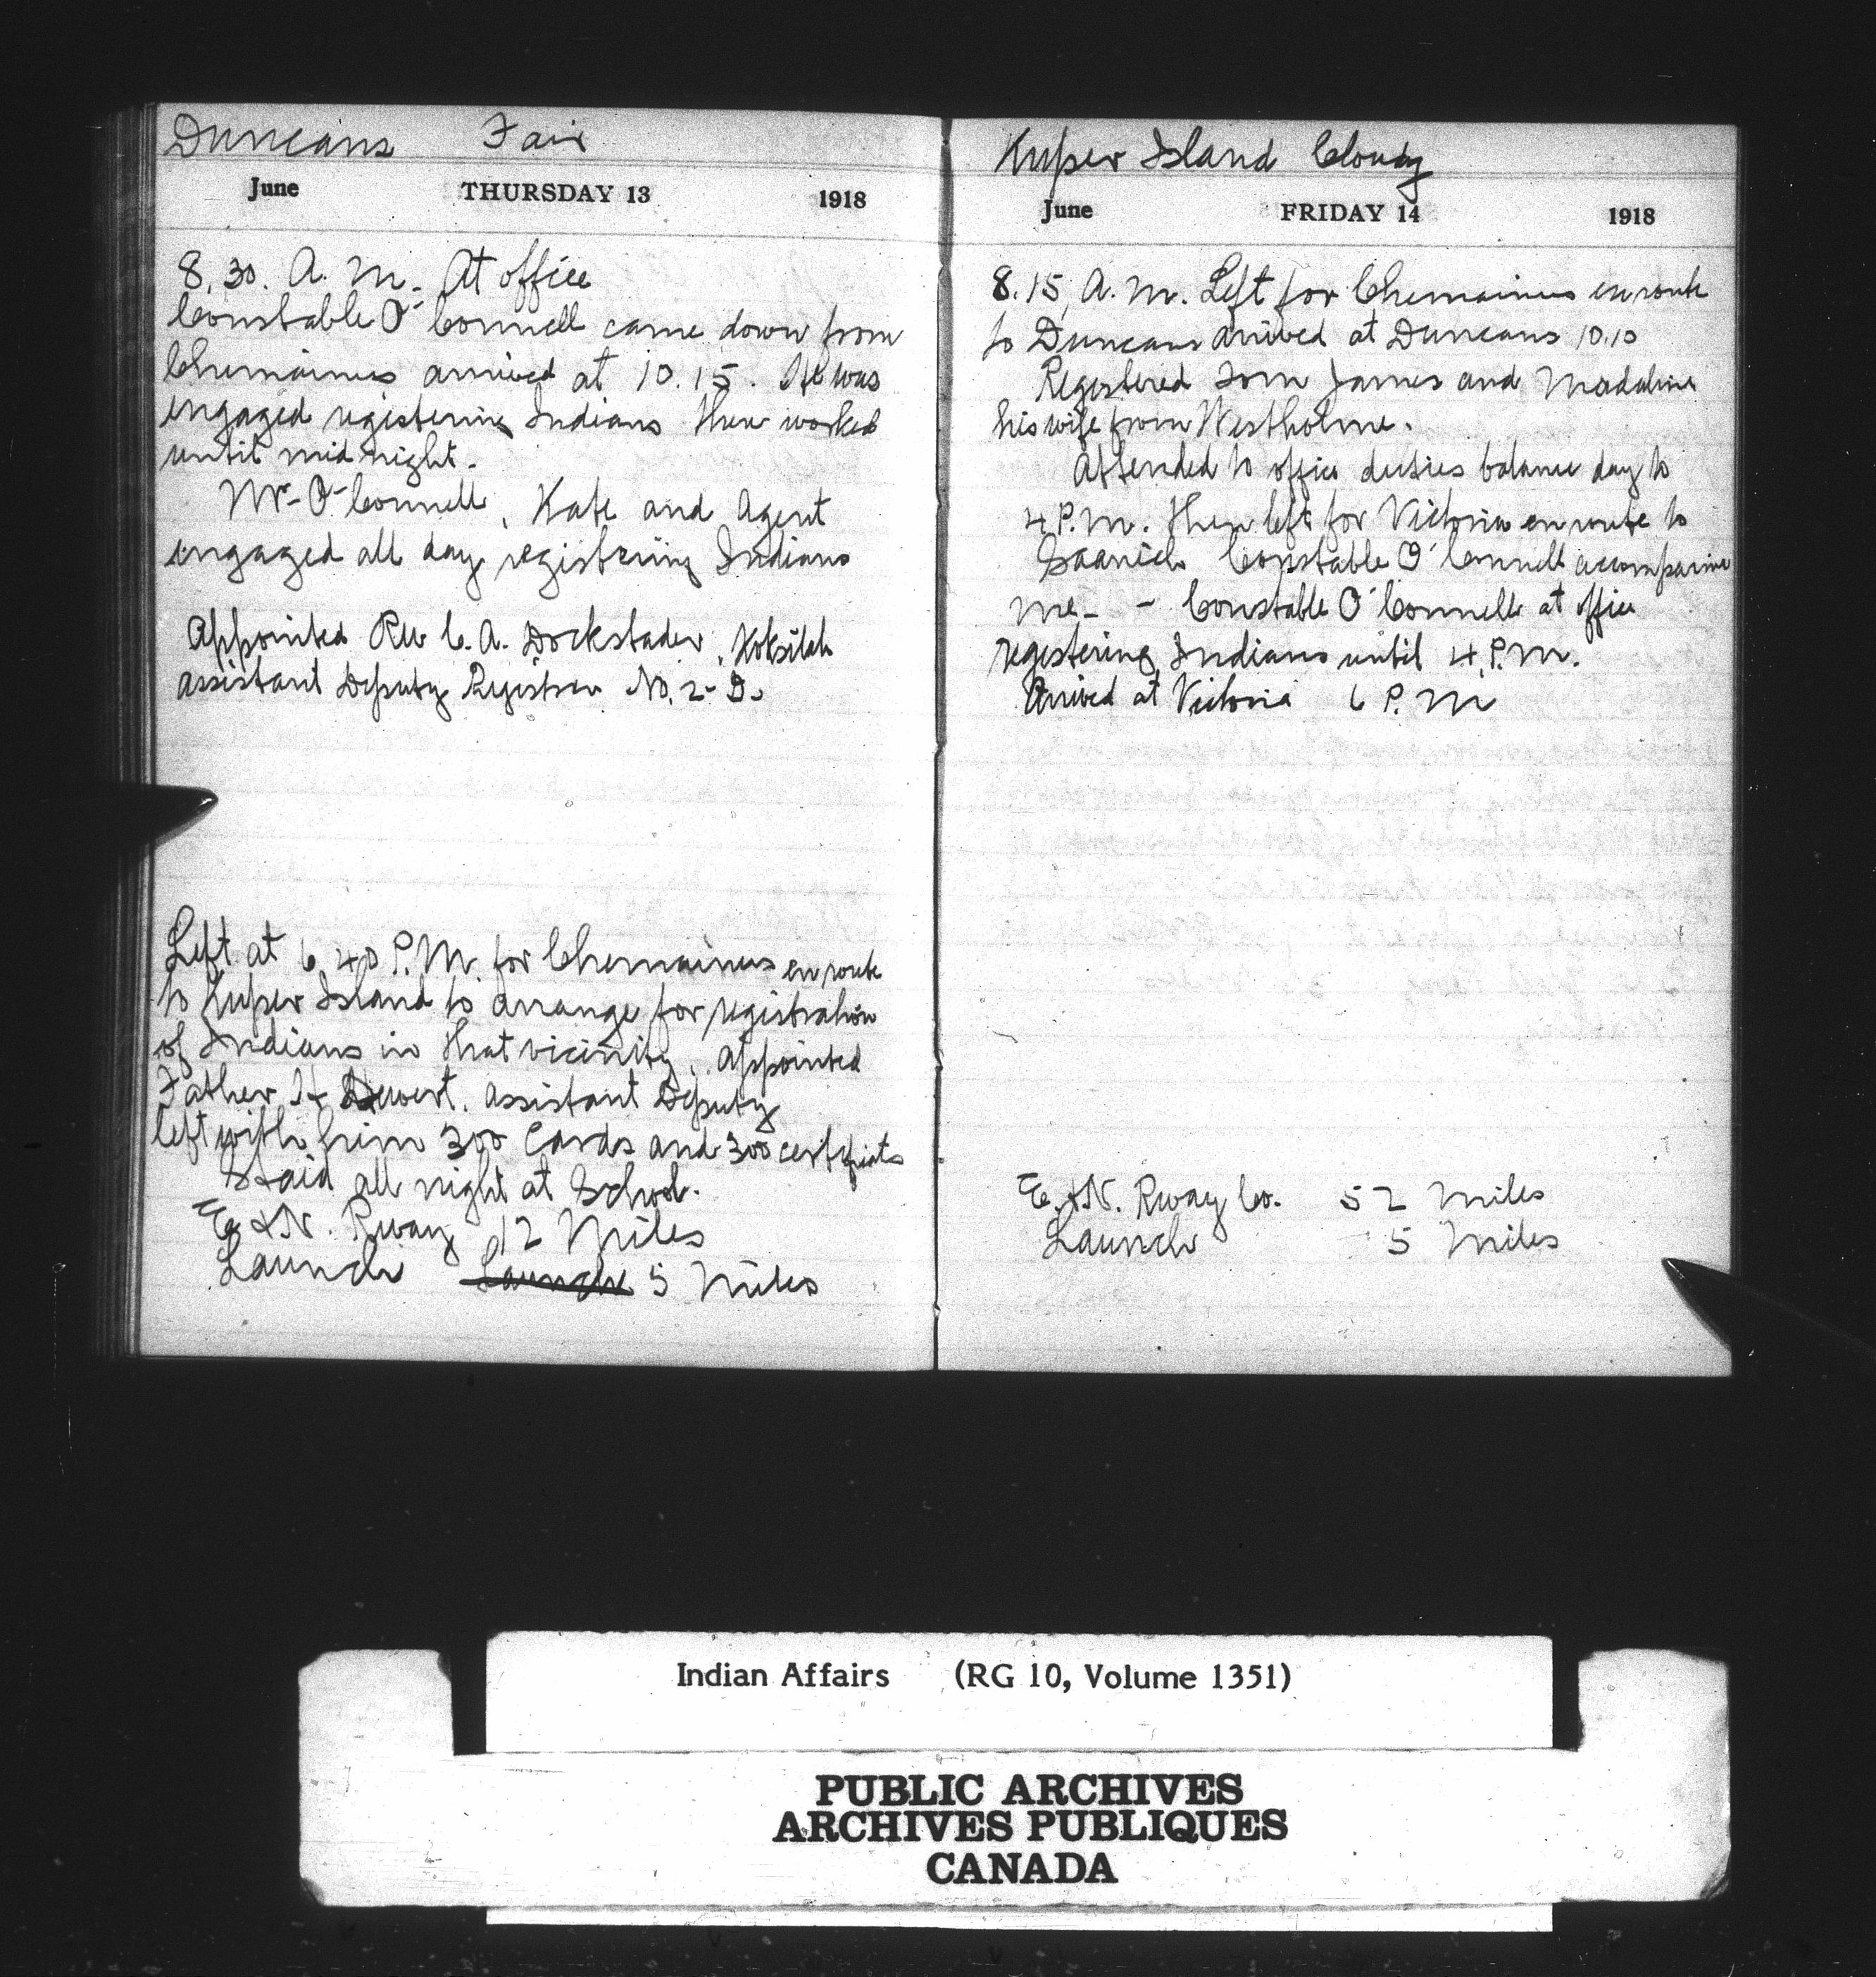 Duncans Fair
June THURSDAY 13 1918
8.30. A.M. At office
Constable O'Connell came down from
Chemainus arrived at 10.15. He was
engaged registering Indians there worked
until mid night.
Mr O'Connell, Kate and Agent
engaged all day registering Indians
Appointed Rev C.A. Dockstader, Koksilah
assistant Deputy Registrar No. 2-D.
Left at 6.40 P.M. for Chemainus en route
to Kuper Island to arrange for registration
of Indians in that vicinity. appointed
Father Assistant Deputy
left with him 300 Cards and 300 certificates
Staid all night at School.
E & N. Rway 12 Miles
Launch Launch 5 Miles
Kuper Island Cloudy
June FRIDAY 14 1918
8.15, A.M. Left for Chemainus en route
to Duncans arrived at Duncans 10.10
Registered Tom James and Madaline
his wife from Westholme.
Attended to office duties balance day to
4 P.M. then left for Victoria en route to
Saanich Constable O'Connell
me - Constable O'Connell at office
registering Indians until 4 P.M.
Arrived at Victoria 6 P.M
E. & N. Rway Co. 52 Miles
Launch 5 Miles
Indian Affairs (RG 10, Volume 1351)
PUBLIC ARCHIVES
ARCHIVES PUBLIQUES
CANADA